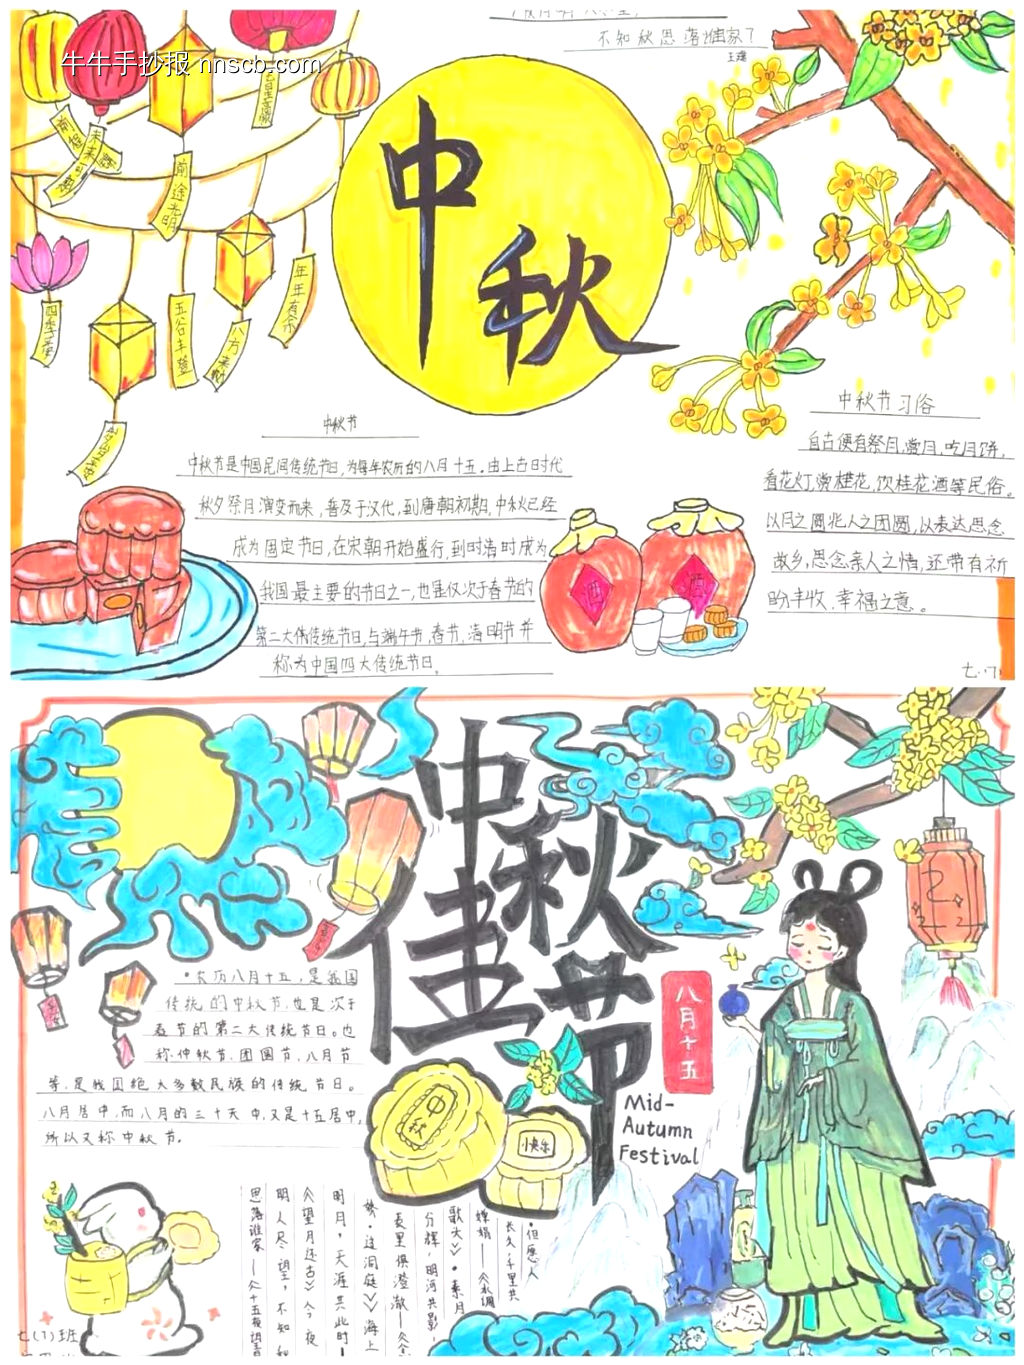 牛牛手抄报 nnscb.com
不知秋思落谁家了
王建
中秋
前途光明
四季平
五谷丰登
八方来
年年有余
中秋节
中秋节是中国民间传统节日,为每年农历的八月十五.由上古时代
秋夕祭月演变而来,普及于汉代,到唐朝初期,中秋已经
成为固定节日,在宋朝开始盛行,到明清时成为
我国最主要的节日之一,也是仅次于春节的
第二大传统节日,与端午节,春节,清明节并
称为中国四大传统节日。
中秋节习俗
自古便有祭月,赏月,吃月饼,
看花灯,赏桂花,饮桂花酒等民俗。
以月之圆兆人之团圆,以表达思念
故乡,思念亲人之情,还带有祈
盼丰收,幸福之意。
酒
酒
七.(7)
中秋佳节
八月十五
Mid-
Autumn
Festival
农历八月十五,是我国
传统的中秋节,也是次于
春节的第二大传统节日。也
称仲秋节,团圆节,八月节
等,是我国绝大多数民族的传统节日。
八月居中,而八月的三十天中,又是十五居中,
所以又称中秋节.
中秋
快乐
·但愿人
长久,千里共
婵娟——《水调
歌头》·素月
分辉,明河共影,
表里俱澄澈——《念
·过洞庭》《海上
明月,天涯共此时—
《望月怀古》《今夜
明人尽望,不知秋
思落谁家——《十五夜望
七(7)班